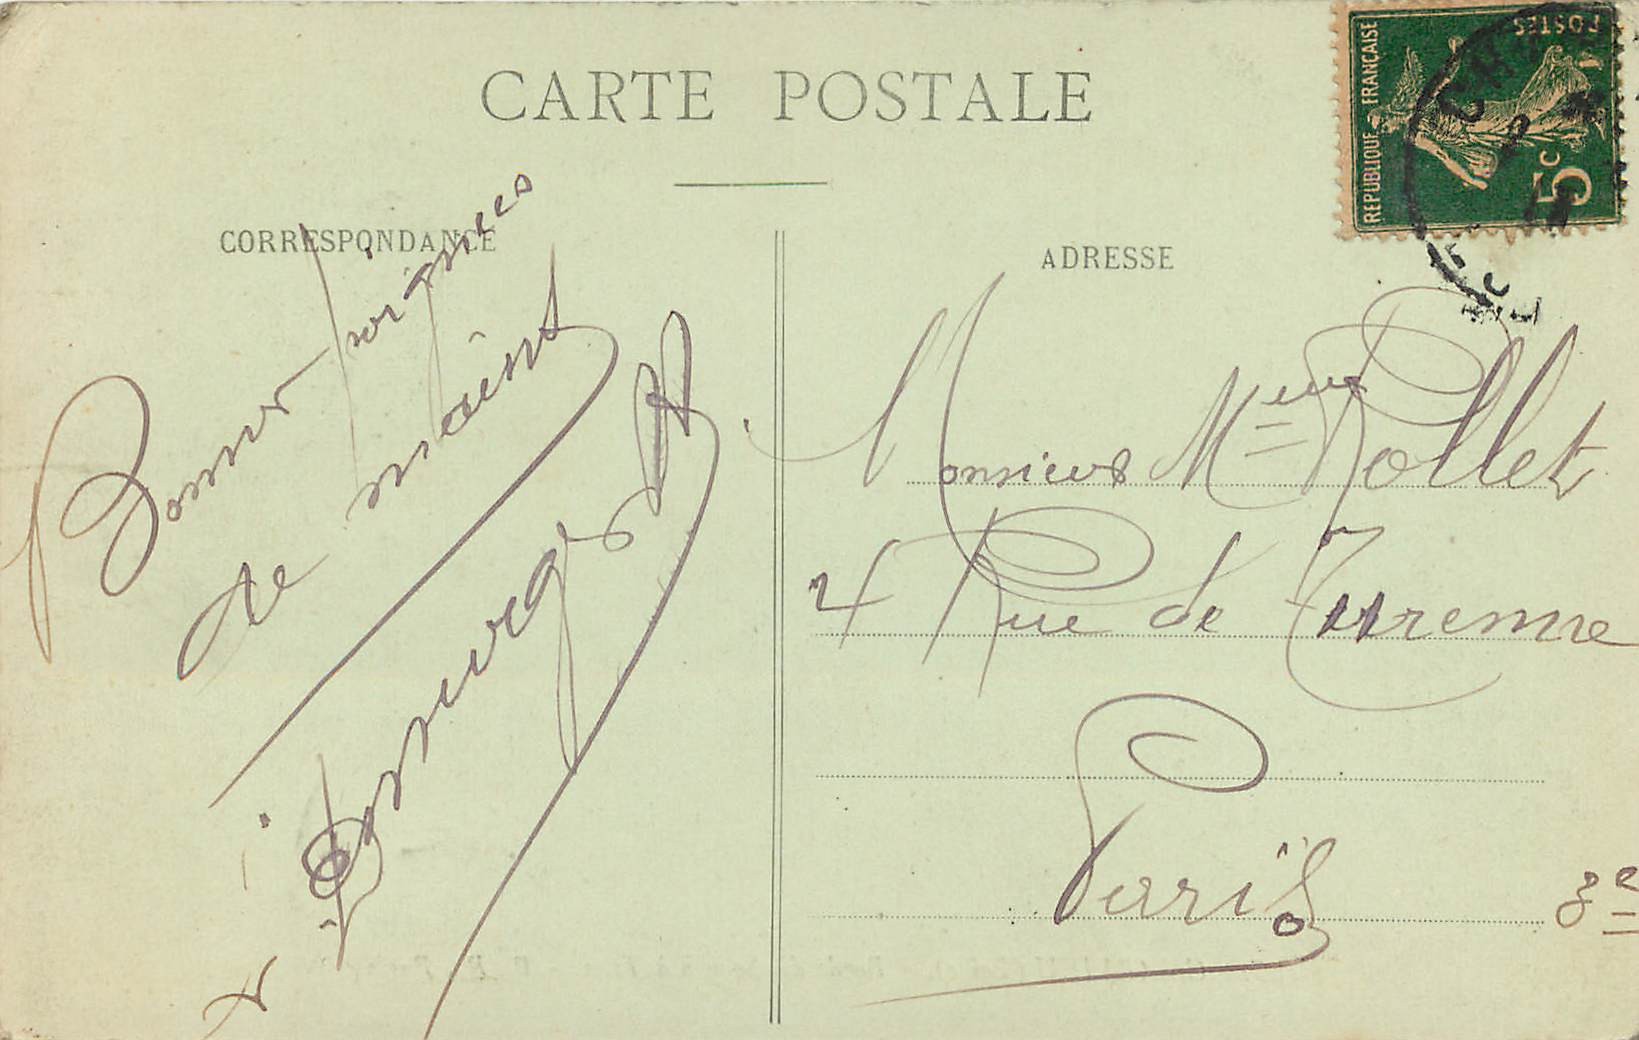 CARTE POSTALE
CORRESPONDANCE
Bonnes poignées
de mains
ADRESSE
Monsieur Mme Pollet
4 Rue de Turenne
Paris 3e
REPUBLIQUE FRANÇAISE
POSTES
5c